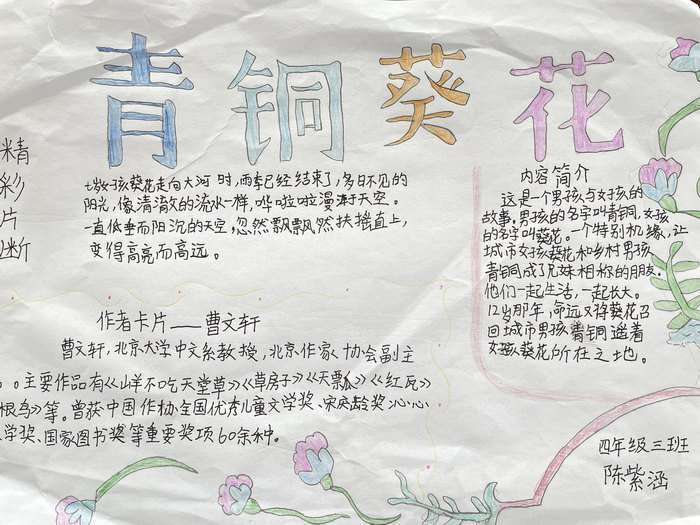 青铜葵花
精
彩
片
断
七岁女孩葵花走向大河时,雨季已经结束了,多日不见的
阳光,像清澈的流水一样,哗啦啦漫泻于天空。
一直低垂而阴沉的天空,忽然飘飘然扶摇直上,
变得高亮而高远。
作者卡片——曹文轩
曹文轩,北京大学中文系教授,北京作家协会副主
。主要作品有《山羊不吃天堂草》《草房子》《天瓢》《红瓦》
根鸟》等。曾获中国作协全国优秀儿童文学奖、宋庆龄奖
学奖、国家图书奖等重要奖项60余种。
内容简介
这是一个男孩与女孩的
故事,男孩的名字叫青铜,女孩
的名字叫葵花。一个特别机缘,让
城市女孩葵花和乡村男孩
青铜成了兄妹相称的朋友。
他们一起生活,一起长大。
12岁那年,命运又将葵花召
回城市男孩青铜遥着
女孩葵花所在之地。
四年级三班
陈紫涵